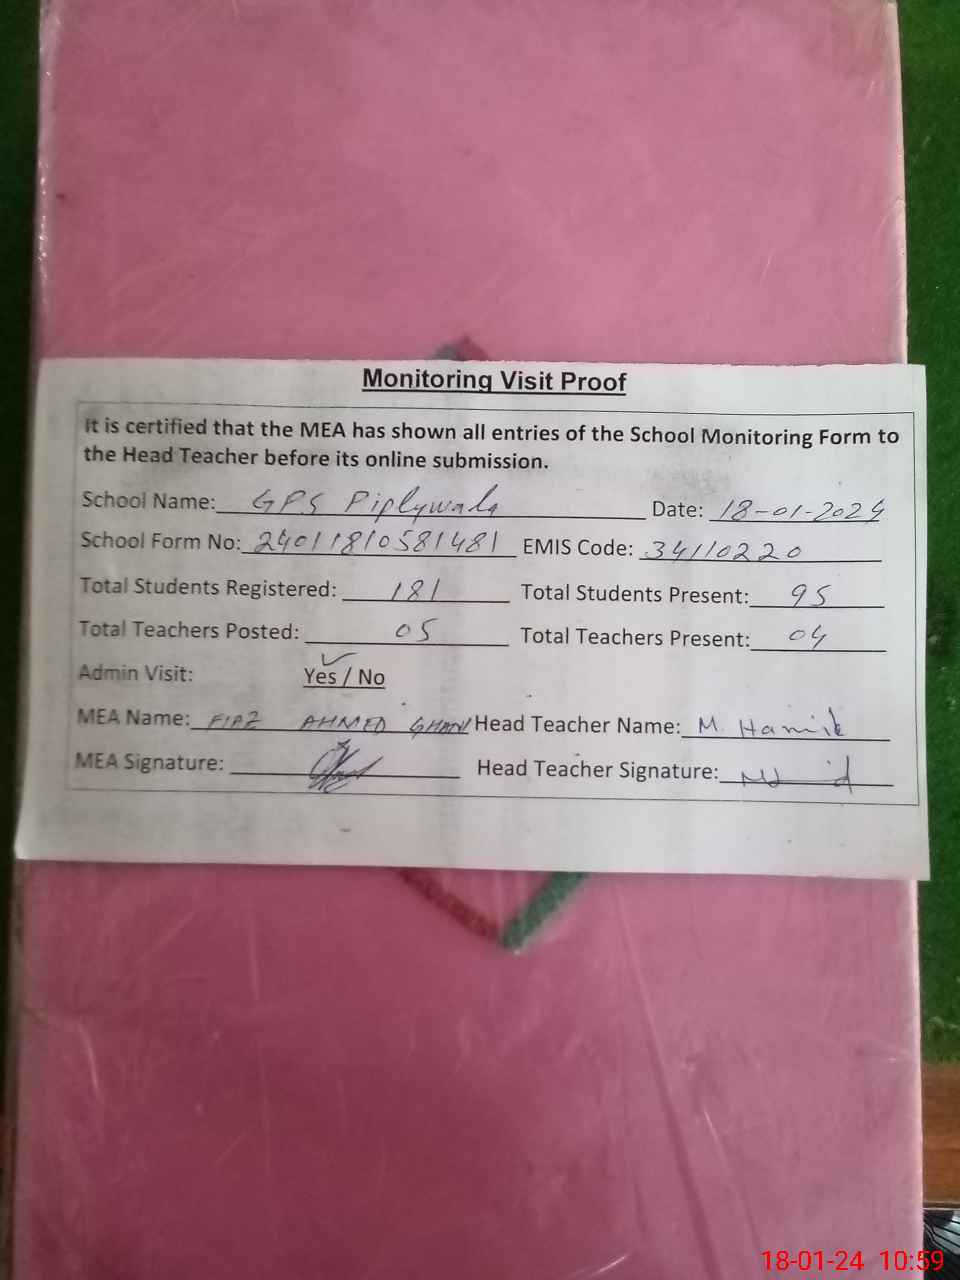 Monitoring Visit Proof
It is certified that the MEA has shown all entries of the School Monitoring Form to
the Head Teacher before its online submission.
School Name: GPS Piplywala Date: 18-01-2024
School Form No: 24011810581481 EMIS Code: 34110220
Total Students Registered: 181 Total Students Present: 95
Total Teachers Posted: 05 Total Teachers Present: 04
Admin Visit: Yes / No
MEA Name: FIAZ AHMED GHANI Head Teacher Name: M. Hamid
MEA Signature: Head Teacher Signature:
18-01-24 10:59